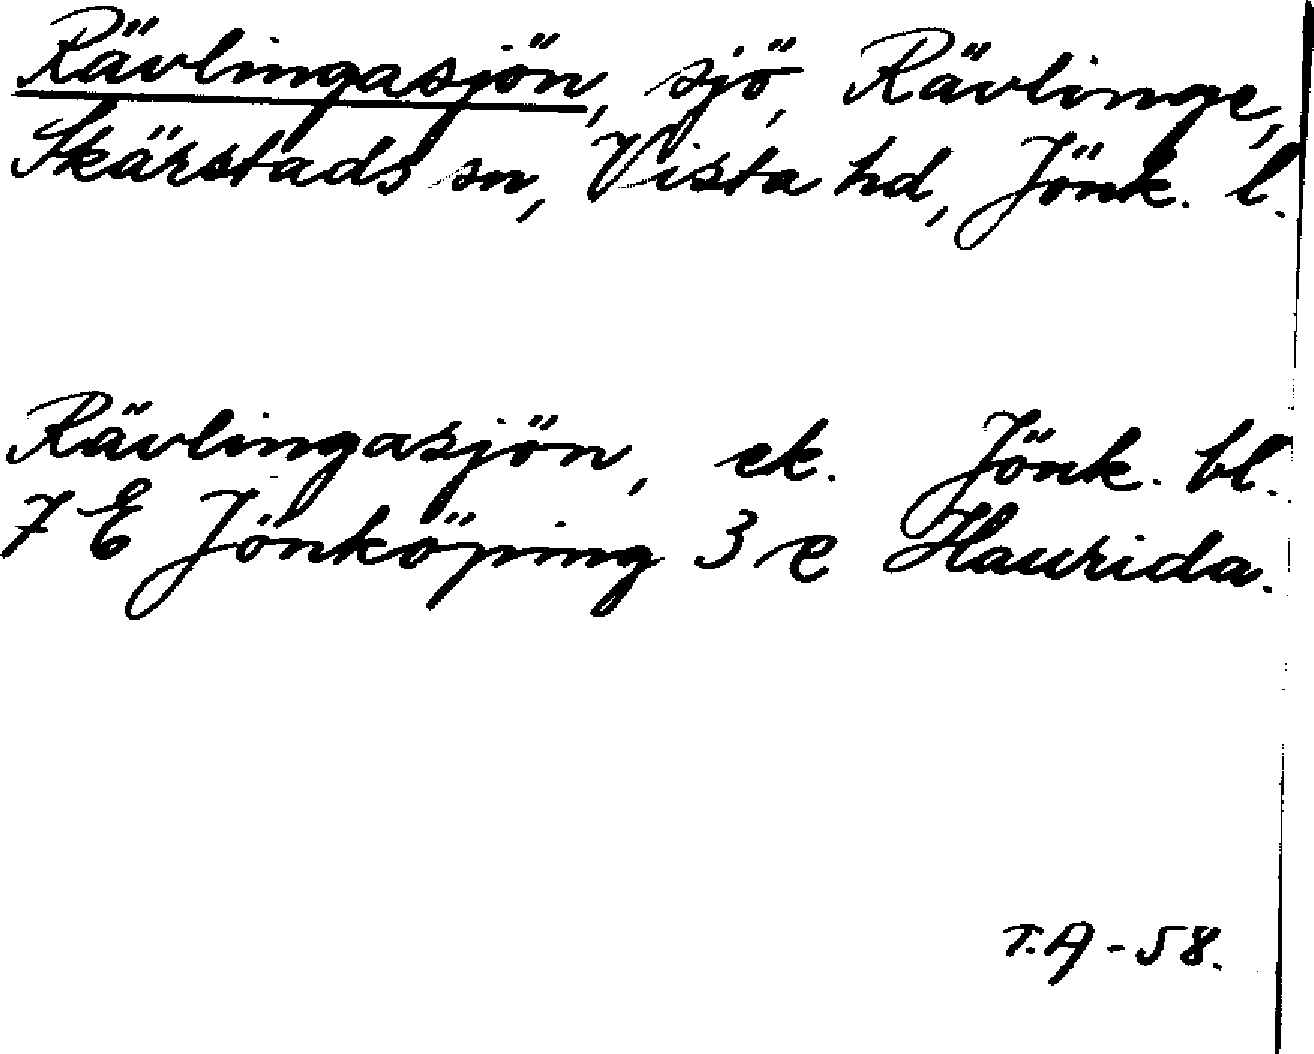 Rävlingasjön, sjö, Rävlinge,
Skärstads sn, Vista hd, Jönk. l.
Rävlingasjön, ek. Jönk. bl.
7 E Jönköping 3 e Haurida.
T.A - 58.